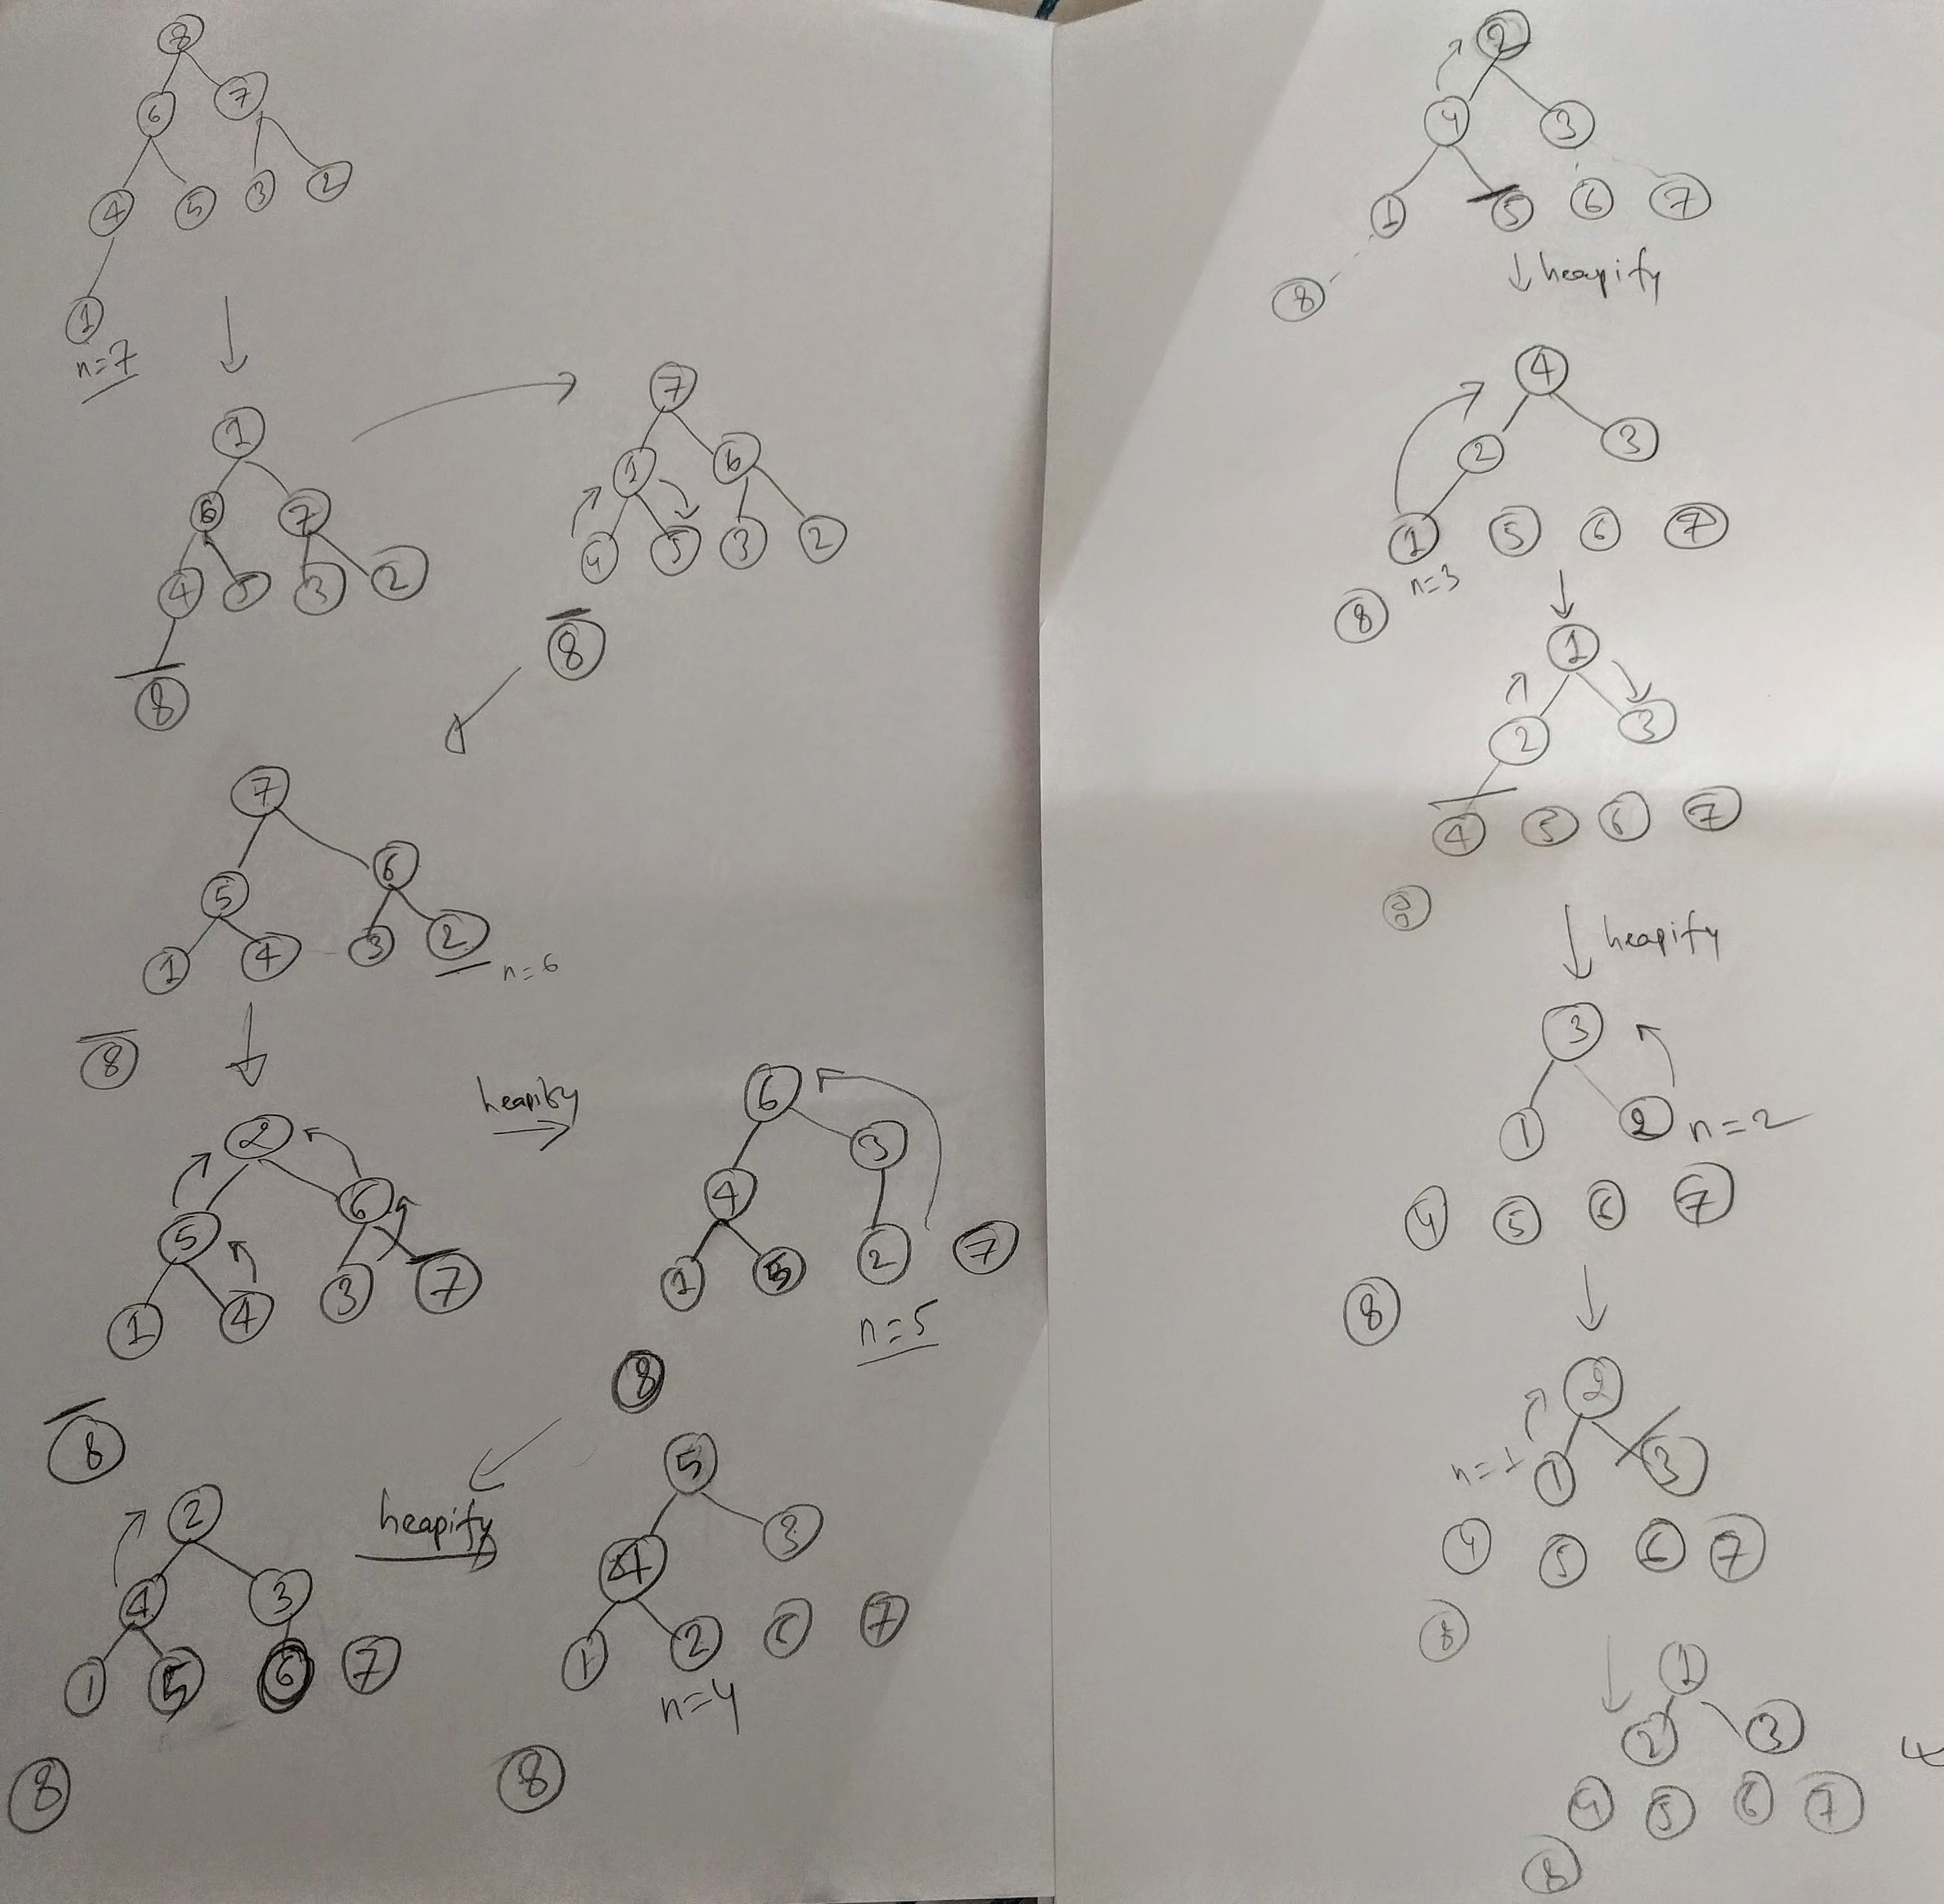 8
6 7
4 5 3 2
1
n=7
1
6 7
4 5 3 2
8
7
1 6
4 5 3 2
8
7
5 6
1 4 3 2
n=6
8
2
5 6
1 4 3 7
8
heapify
6
3
4
1 5 2 7
n=5
8
2
4 3
1 5 6 7
8
heapify
5
4 3
1 2 6 7
n=4
8
2
4 3
1 5 6 7
8
heapify
4
2 3
1 5 6 7
n=3
8
1
2 3
4 5 6 7
8
heapify
3
1 2 n=2
4 5 6 7
8
2
n=1 1 3
4 5 6 7
8
1
2 3
4 5 6 7
8